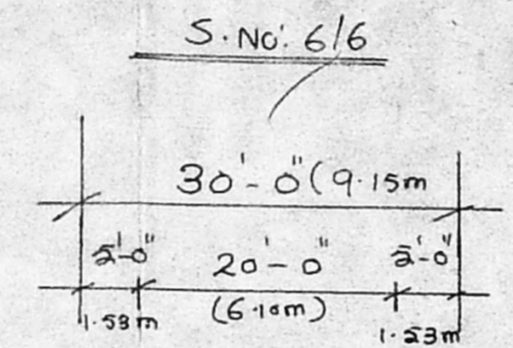 S.No. 6/6
30'-0" (9.15m
5'-0" 20'-0" 5'-0"
1.53m (6.10m) 1.53m